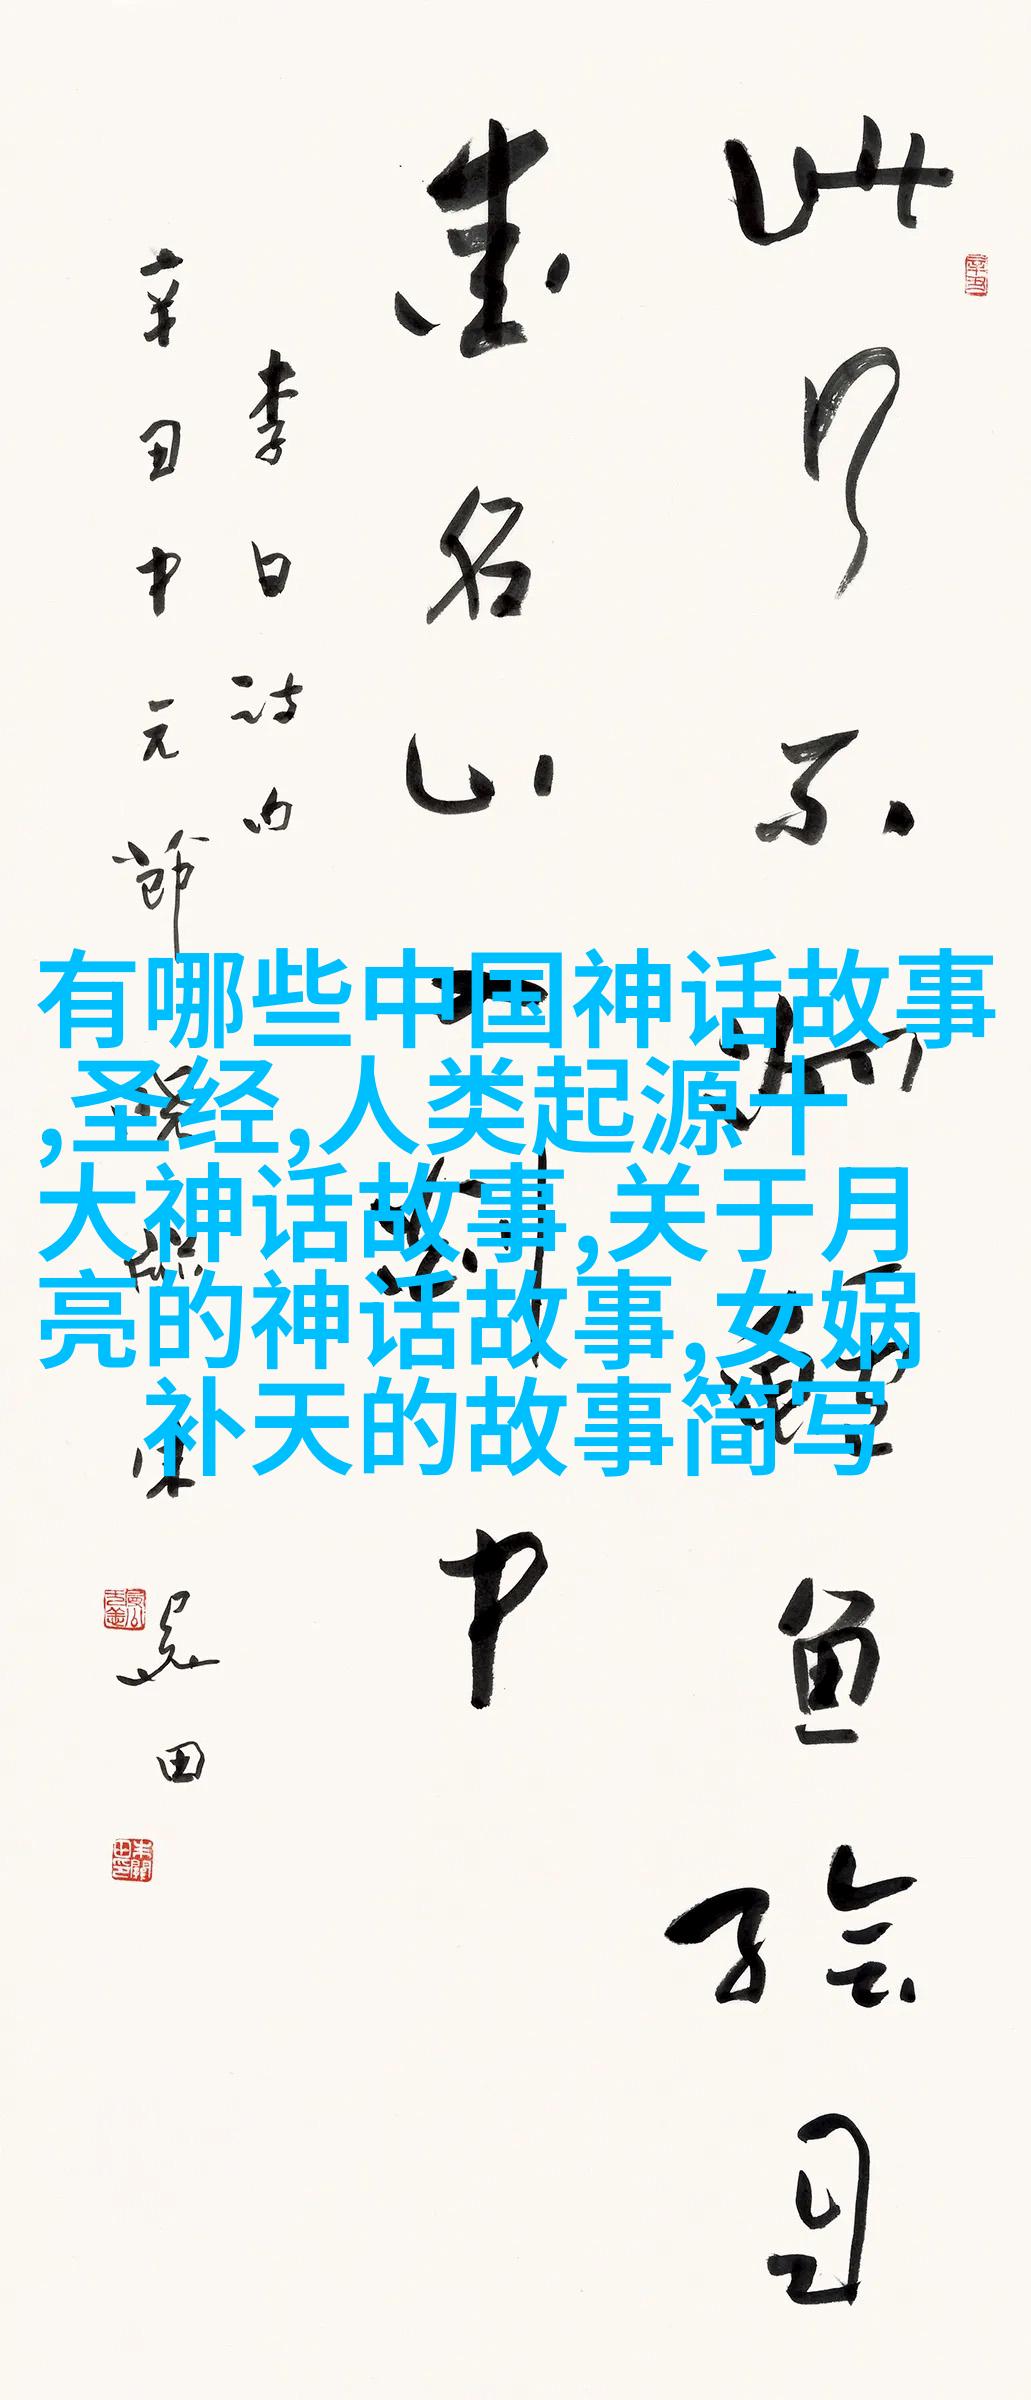 此行不为鲈鱼鲙自
爱名山入剡中
李白诗句
辛丑中元节
田
有哪些中国神话故事
,圣经,人类起源十
大神话故事,关于月
亮的神话故事,女娲
补天的故事简写